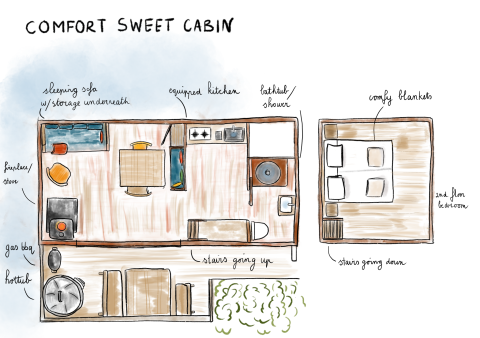 COMFORT SWEET CABIN
sleeping sofa
w/storage underneath
equipped kitchen
bathtub/
shower
comfy blankets
fireplace/
stove
2nd floor
bedroom
gas bbq
stairs going up
stairs going down
hottub